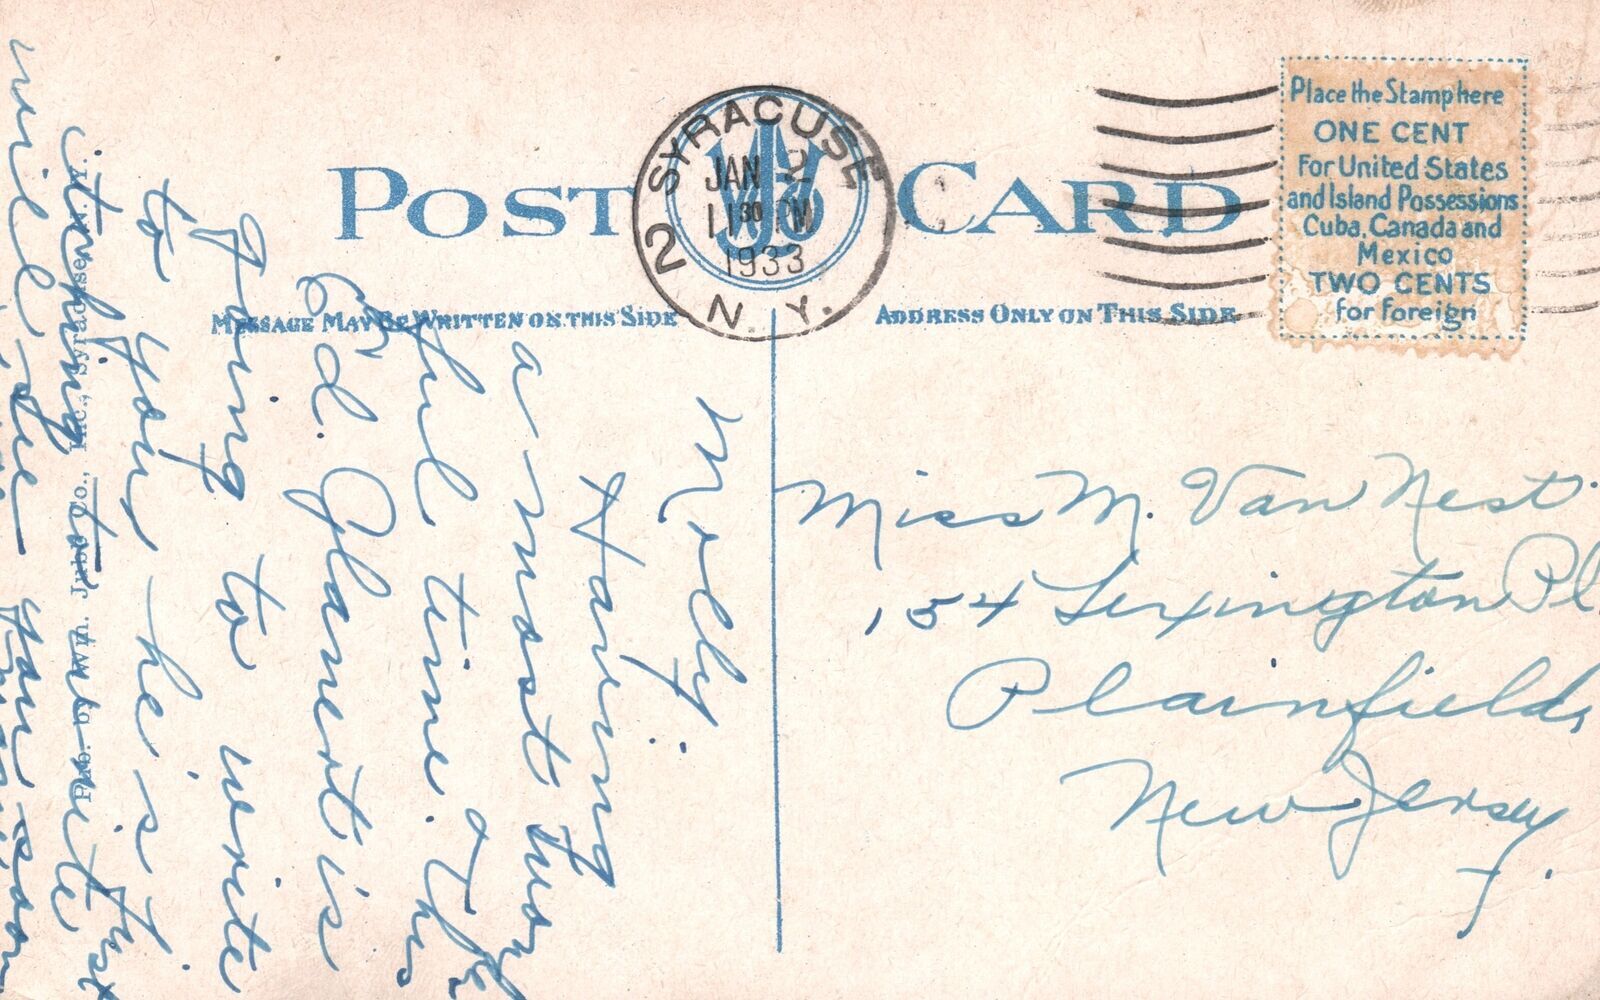 POST CARD
SYRACUSE
JAN 2
11 30 PM
1933
N. Y.
2
MESSAGE MAY BE WRITTEN ON THIS SIDE
ADDRESS ONLY ON THIS SIDE
Place the Stamp here
ONE CENT
For United States
and Island Possessions
Cuba, Canada and
Mexico
TWO CENTS
for Foreign
Molly,
Having
a most won
ful time. The
Ed. Glanert is
going to write
to you he's just
itching to write
will see you soon
Miss M. Van Nest
154 Lexington Pl.
Plainfield,
New Jersey.
Pub. by Wm. Jubb Co., Inc., Syracuse, N. Y.